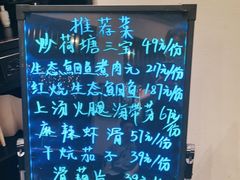 推荐菜
炒荷塘三宝 49元/份
生态鮰鱼煮肉元 27元/份
红烧生态鮰鱼 187元/份
上汤火腿海带芽 6元/份
麻辣虾滑 51元/份
干烧茄子 39元/份
藕片 39元/份